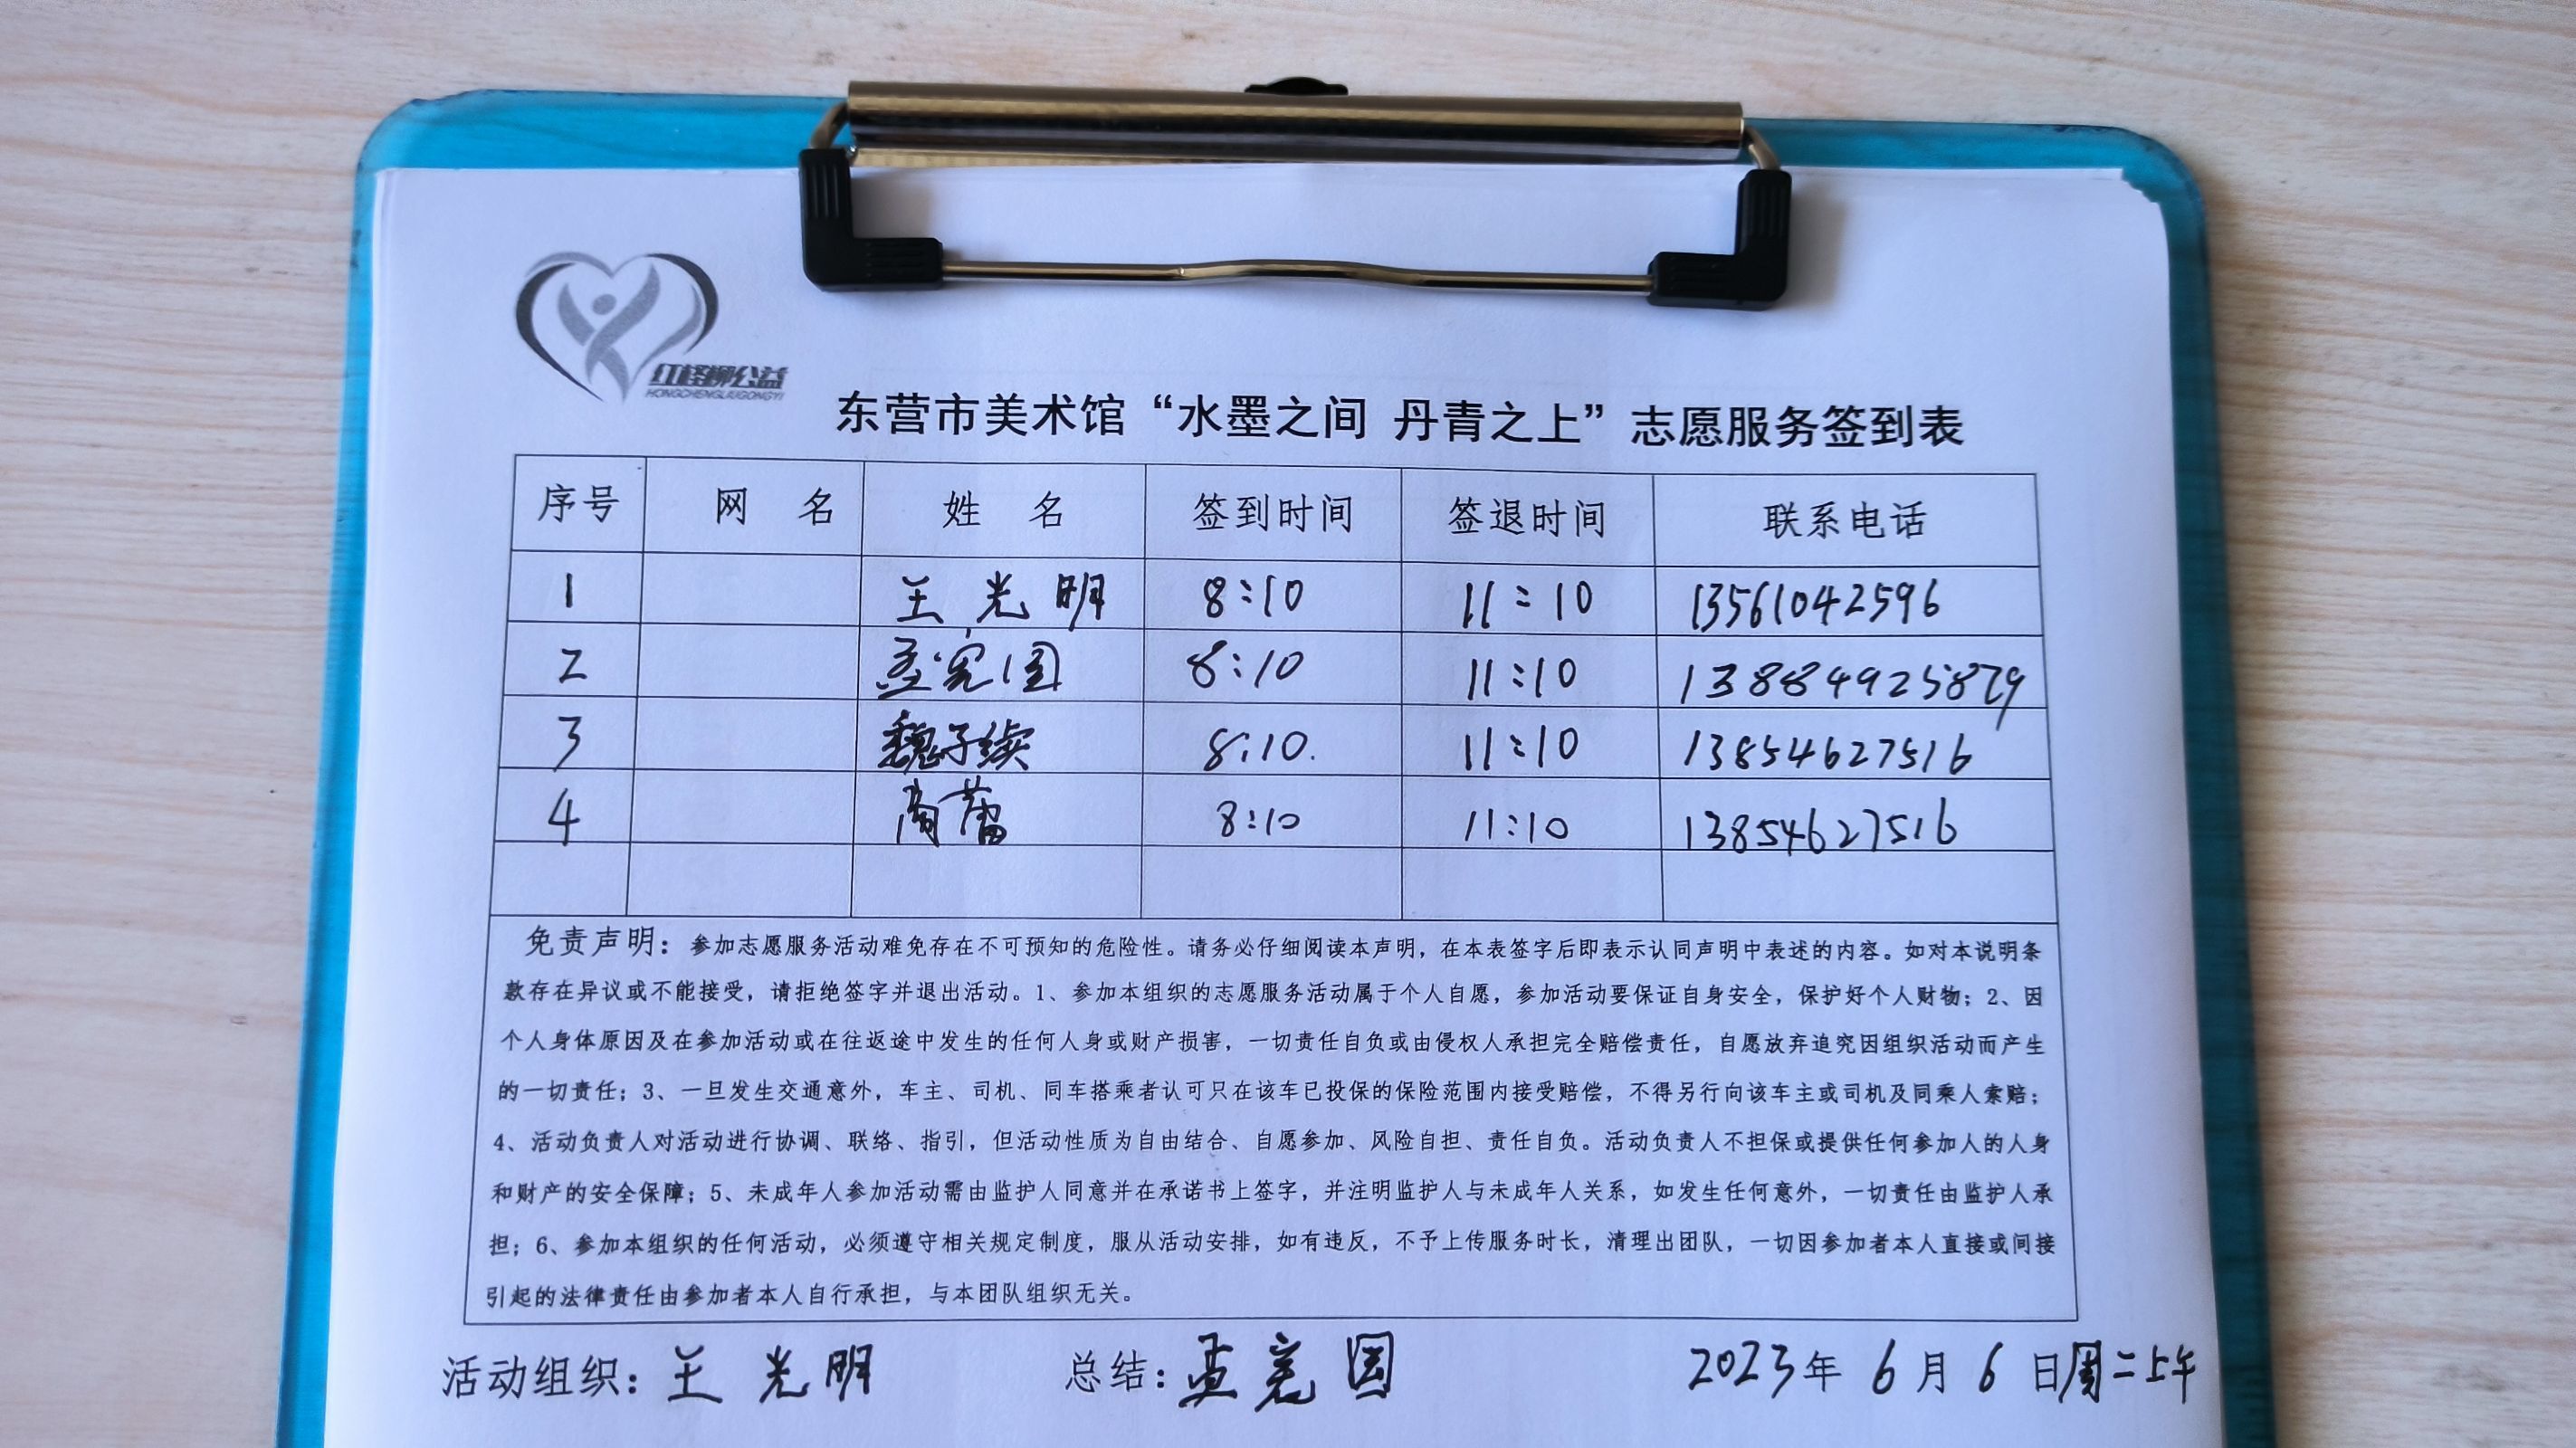 红柽柳公益
HONGCHENGLIUGONGYI
东营市美术馆“水墨之间 丹青之上”志愿服务签到表
序号 网 名 姓 名 签到时间 签退时间 联系电话
1 王光明 8:10 11:10 13561042596
2 孟宪国 8:10 11:10 13884925879
3 魏子续 8:10. 11:10 13854627516
4 商蕾 8:10 11:10 13854627516
免责声明：参加志愿服务活动难免存在不可预知的危险性。请务必仔细阅读本声明，在本表签字后即表示认同声明中表述的内容。如对本说明条
款存在异议或不能接受，请拒绝签字并退出活动。1、参加本组织的志愿服务活动属于个人自愿，参加活动要保证自身安全，保护好个人财物；2、因
个人身体原因及在参加活动或在往返途中发生的任何人身或财产损害，一切责任自负或由侵权人承担完全赔偿责任，自愿放弃追究因组织活动而产生
的一切责任；3、一旦发生交通意外，车主、司机、同车搭乘者认可只在该车已投保的保险范围内接受赔偿，不得另行向该车主或司机及同乘人索赔；
4、活动负责人对活动进行协调、联络、指引，但活动性质为自由结合、自愿参加、风险自担、责任自负。活动负责人不担保或提供任何参加人的人身
和财产的安全保障；5、未成年人参加活动需由监护人同意并在承诺书上签字，并注明监护人与未成年人关系，如发生任何意外，一切责任由监护人承
担；6、参加本组织的任何活动，必须遵守相关规定制度，服从活动安排，如有违反，不予上传服务时长，清理出团队，一切因参加者本人直接或间接
引起的法律责任由参加者本人自行承担，与本团队组织无关。
活动组织：王光明 总结：孟宪国 2023年6月6日周二上午